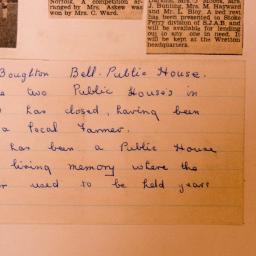 Norfolk. A competition ar-
ranged by Mrs. Askew was
won by Mrs. C. Ward.
J. Bunting, Mrs. M. Hayward
and Mr. L. Bloy. A bed rest
has been presented to Stoke
Ferry division of S.J.A.B. and
will be available for lending
out to any one in need. It
will be kept at the Wretton
headquarters.
Boughton Bell. Public House.
two Public Houses in
has closed, having been
a local Farmer.
has been a Public House
living memory where the
used to be held years